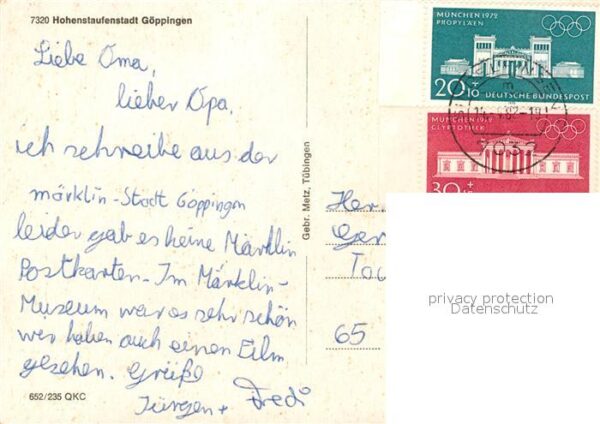 7320 Hohenstaufenstadt Göppingen
Liebe Oma,
lieber Opa,
ich schreibe aus der
märklin-Stadt Göppingen
leider gab es keine Märklin
Postkarten. Im Märklin-
Museum war es sehr schön
wir haben auch einen Film
gesehen. Grüße
Jürgen + Fredi
652/235 QKC
Gebr. Metz, Tübingen
MÜNCHEN 1972
PROPYLÄEN
20+10
DEUTSCHE BUNDESPOST
MÜNCHEN 1972
GLYPTOTHEK
30+
Her
Ger
65
privacy protection
Datenschutz